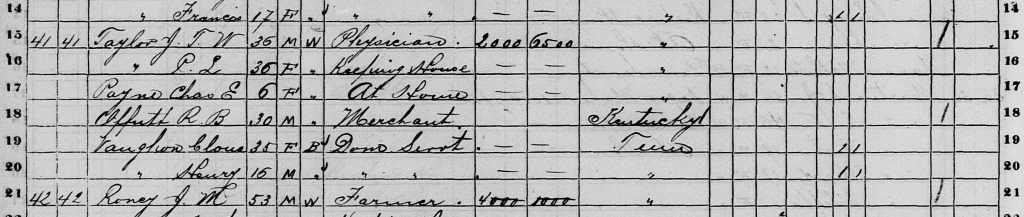 14 " Francis 17 F " " " — — " 1 1 14
15 41 41 Taylor J. T. W 36 M W Physician. 2000 6500 " 1 15
16 " P. L 36 F " Keeping House — — " 16
17 Payne Chas E 6 F " At Home — — " 17
18 Offutt R. B 30 M " Merchant. — — Kentucky 1 18
19 Vaughon 35 F B Dom Servt. — — Tenn 1 1 19
20 " Henry 16 M " " " — — " 1 1 20
21 42 42 Roney J. M 53 M W Farmer. 4000 1000 " 1 21